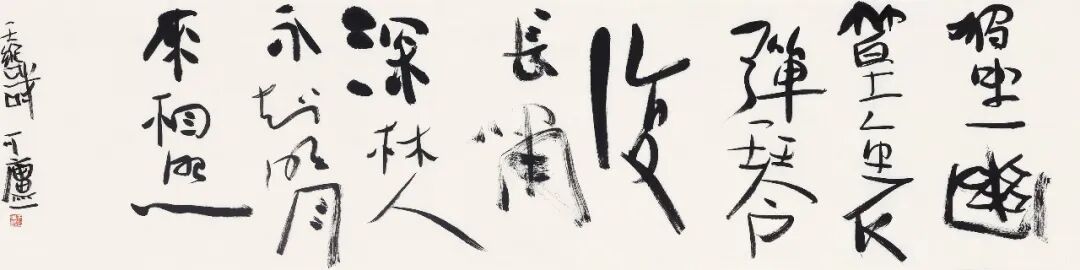 獨坐幽
篁裏
彈琴
復
長嘯
深林人
不知明月
來相照
王維詩 可廬